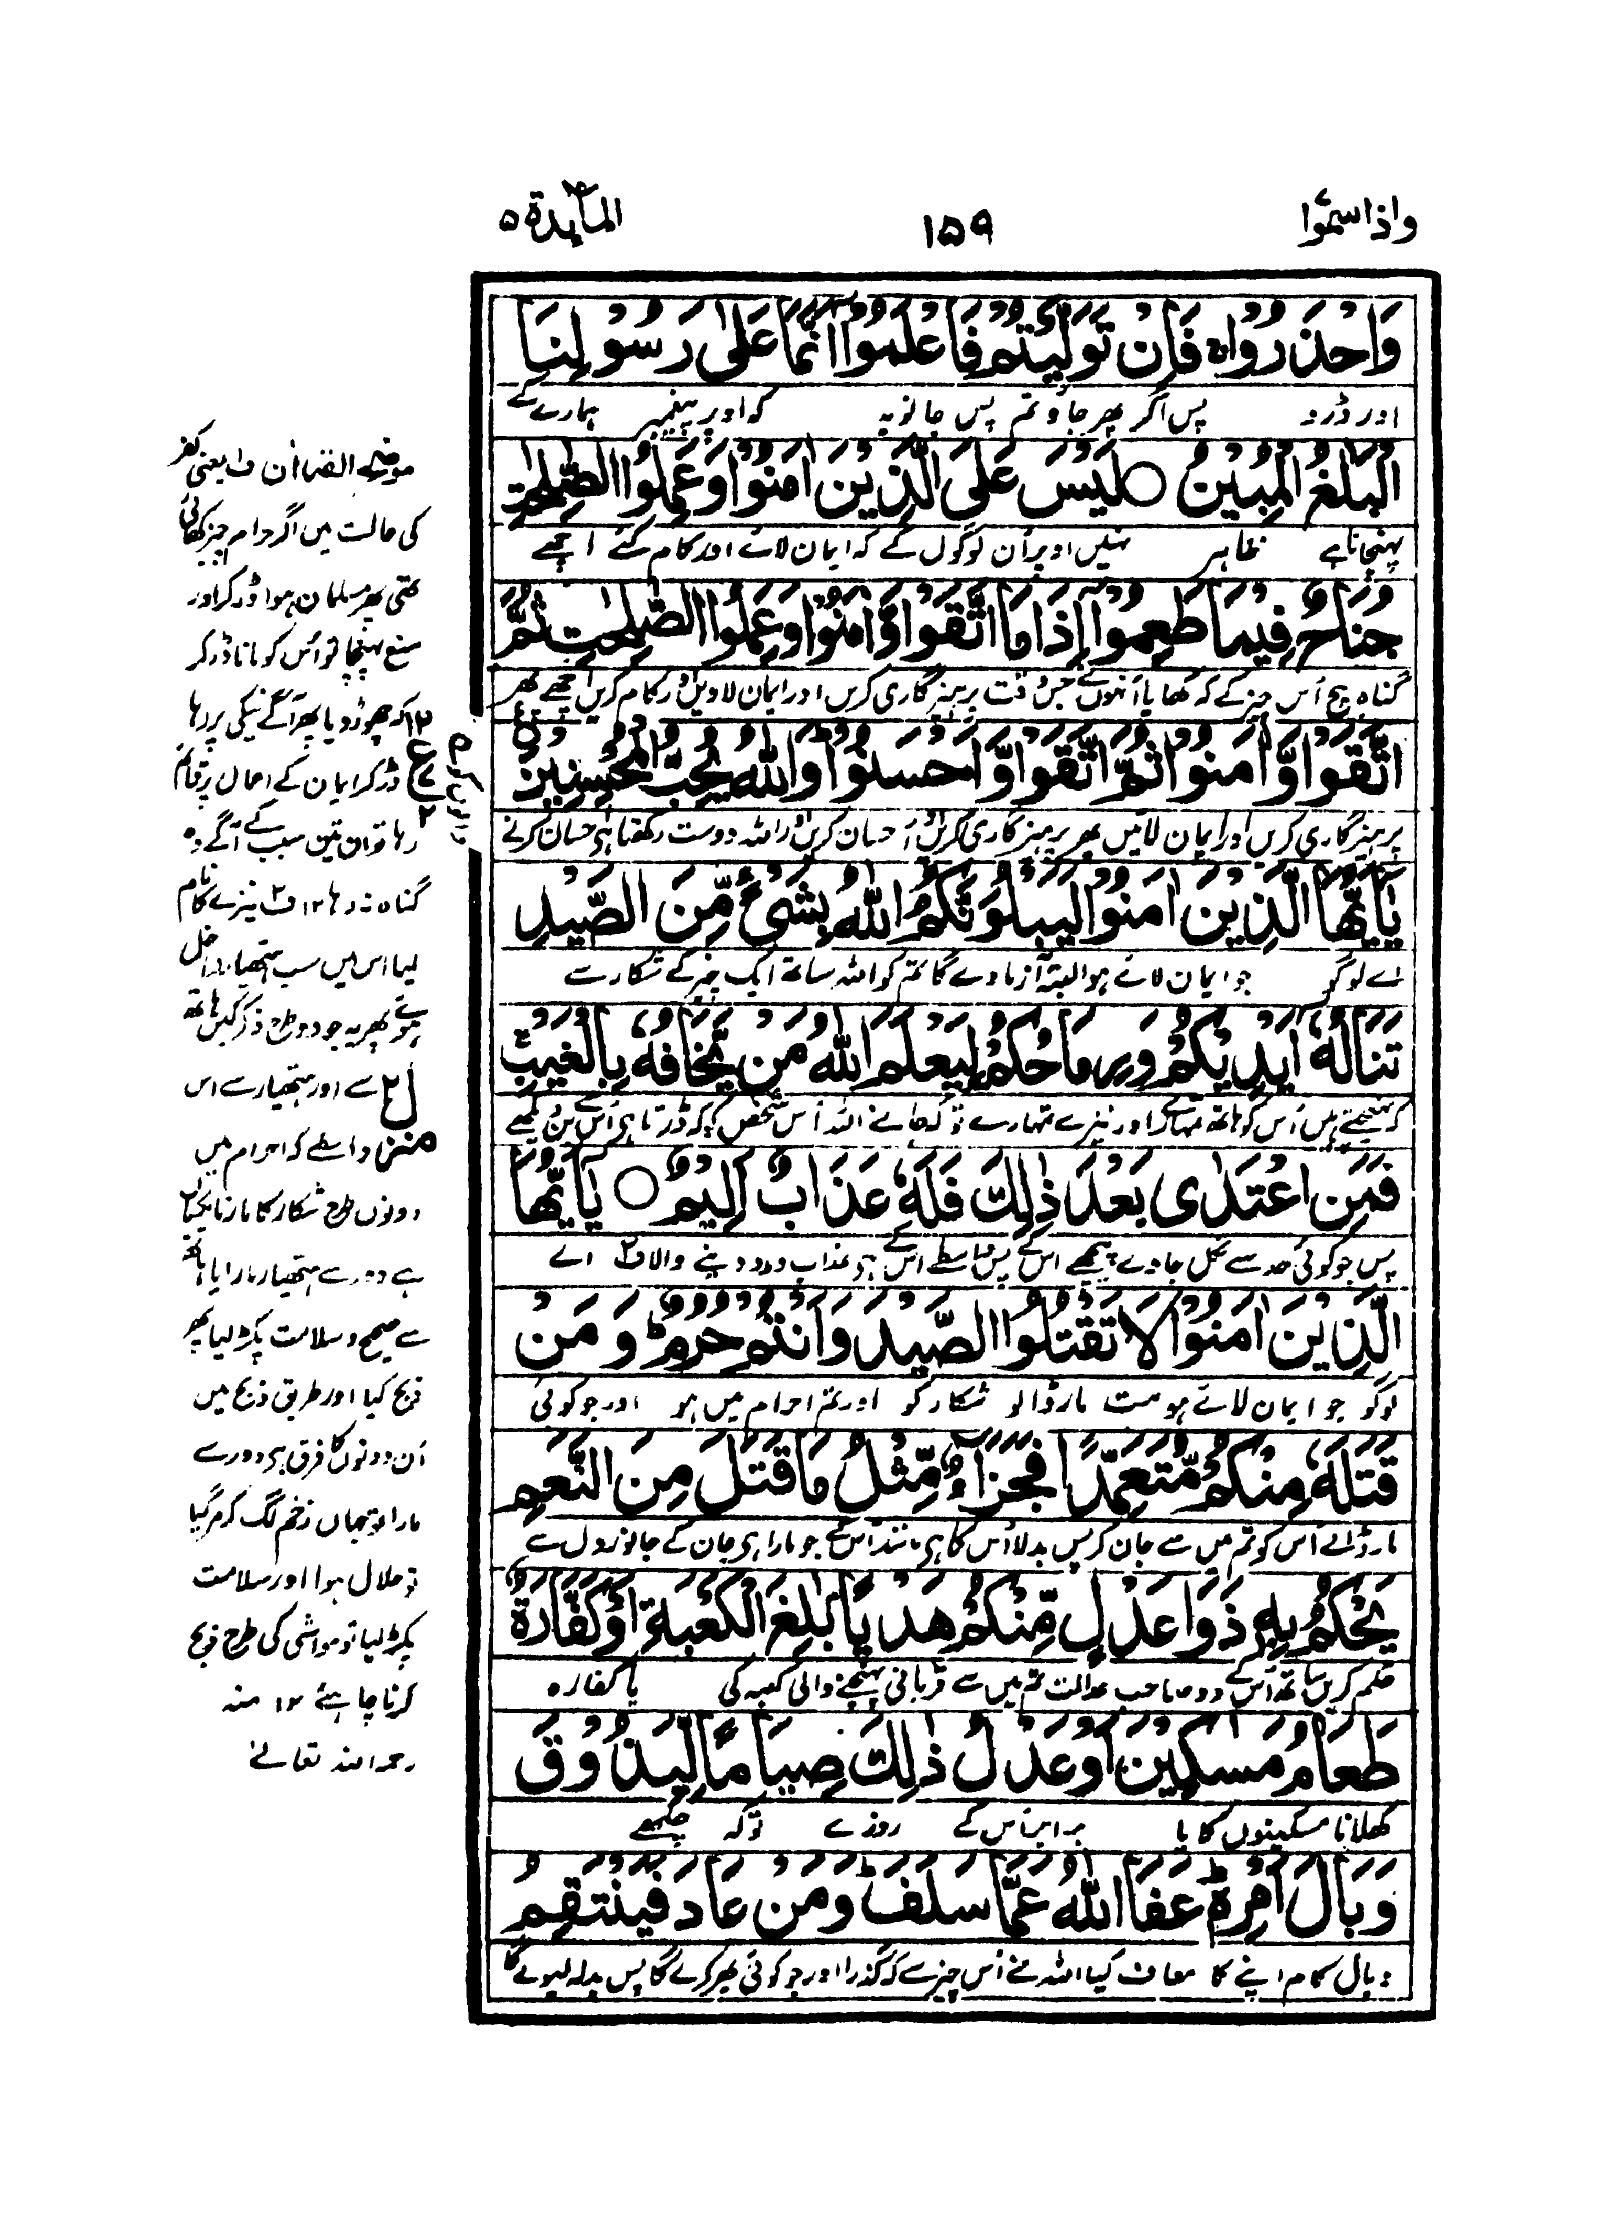 واذاسمعوا
۱۵۹
المآئدة ۵
وَاحْذَرُوْاۚ فَاِنْ تَوَلَّيْتُمْ فَاعْلَمُوْۤا اَنَّمَا عَلٰى رَسُوْلِنَا
اور ڈرو پس اگر پھر جاؤ تم پس جانو یہ کہ اوپر پیغمبر ہمارے کے
الْبَلٰغُ الْمُبِيْنُ ○ لَيْسَ عَلَى الَّذِيْنَ اٰمَنُوْا وَعَمِلُوا الصّٰلِحٰتِ
پہنچانا ہے ظاہر نہیں اوپر اُن لوگوں کے کہ ایمان لائے اور کام کئے اچھے
جُنَاحٌ فِيْمَا طَعِمُوْۤا اِذَا مَا اتَّقَوْا وَّاٰمَنُوْا وَعَمِلُوا الصّٰلِحٰتِ ثُمَّ
گناہ بیچ اُس چیز کے کہ کھایا اُنہوں نے جس وقت پرہیزگاری کریں اور ایمان لاویں اور کام کریں اچھے پھر
اتَّقَوْا وَّاٰمَنُوْا ثُمَّ اتَّقَوْا وَّاَحْسَنُوْاؕ وَاللّٰهُ يُحِبُّ الْمُحْسِنِيْنَ
پرہیزگاری کریں اور ایمان لائیں پھر پرہیزگاری کریں اور احسان کریں اور اللہ دوست رکھتا ہی احسان کرنے
يٰۤاَيُّهَا الَّذِيْنَ اٰمَنُوْا لَيَبْلُوَنَّكُمُ اللّٰهُ بِشَىْءٍ مِّنَ الصَّيْدِ
اے لوگو جو ایمان لائے ہو البتہ آزماوے گا تم کو اللہ ساتھ ایک چیز کے شکار سے
تَنَالُهٗۤ اَيْدِيْكُمْ وَرِمَاحُكُمْ لِيَعْلَمَ اللّٰهُ مَنْ يَّخَافُهٗ بِالْغَيْبِۚ
کہ پہنچتے ہیں اُس کو ہاتھ تمہارے اور نیزے تمہارے تو کہ جانے اللہ اُس شخص کو کہ ڈرتا ہی اُس سے بن دیکھے
فَمَنِ اعْتَدٰى بَعْدَ ذٰلِكَ فَلَهٗ عَذَابٌ اَلِيْمٌ ○ يٰۤاَيُّهَا
پس جو کوئی حد سے نکل جاوے پیچھے اس کے پس واسطے اس کے ہی عذاب درد دینے والا ف۲ اے
الَّذِيْنَ اٰمَنُوْا لَا تَقْتُلُوا الصَّيْدَ وَاَنْتُمْ حُرُمٌؕ وَمَنْ
لوگو جو ایمان لائے ہو مت مار ڈالو شکار کو اور تم احرام میں ہو اور جو کوئی
قَتَلَهٗ مِنْكُمْ مُّتَعَمِّدًا فَجَزَآءٌ مِّثْلُ مَا قَتَلَ مِنَ النَّعَمِ
مار ڈالے اُس کو تم میں سے جان کر پس بدلا اُس کا ہی مانند اُس کے جو مارا ہی جان کے جانوروں سے
يَحْكُمُ بِهٖ ذَوَا عَدْلٍ مِّنْكُمْ هَدْيًۢا بٰلِغَ الْكَعْبَةِ اَوْ كَفَّارَةٌ
حکم کریں ساتھ اُس کے دو صاحب عدالت تم میں سے قربانی پہنچنے والی کعبہ کی یا کفارہ
طَعَامُ مَسٰكِيْنَ اَوْ عَدْلُ ذٰلِكَ صِيَامًا لِّيَذُوْقَ
کھلانا مسکینوں کا یا برابر اُس کے روزے تو کہ چکھے
وَبَالَ اَمْرِهٖؕ عَفَا اللّٰهُ عَمَّا سَلَفَؕ وَمَنْ عَادَ فَيَنْتَقِمُ
وبال کام اپنے کا معاف کیا اللہ نے اُس چیز سے کہ گذرا اور جو کوئی پھر کرے گا پس بدلہ لیوے گا
موضح القرآن ف۱ یعنی کفر
کی حالت میں اگر حرام چیز کھائی
تھی پھر مسلمان ہوا ڈر کر اور
منع پہنچا تو اُس کو مانا ڈر کر
کہ چھوڑ دیا پھر آگے نیکی پر رہا
ڈر کر ایمان کے اعمال پر قائم
رہا تو ان تین سبب کے آگے وہ
گناہ نہ رہا ۱۲ ف۲ نیزے کا نام
لیا اس میں سب ہتھیار داخل
ہوئے پھر یہ جو دو طرح ذکر کیں ہاتھ
سے اور ہتھیار سے اس
واسطے کہ احرام میں
دونوں طرح شکار کا مارنا یکساں
ہے دور سے ہتھیار مارا یا ہاتھ
سے صحیح و سلامت پکڑ لیا پھر
ذبح کیا اور طریق ذبح میں
اُن دونوں کا فرق ہی دور سے
مارا تو جہاں زخم لگ کر مر گیا
تو حلال ہوا اور سلامت
پکڑ لیا تو مواشی کی طرح ذبح
کرنا چاہئے ۱۲ منہ
رحمہ اللہ تعالےٰ
۱۲
ع
۲
منزل ۲